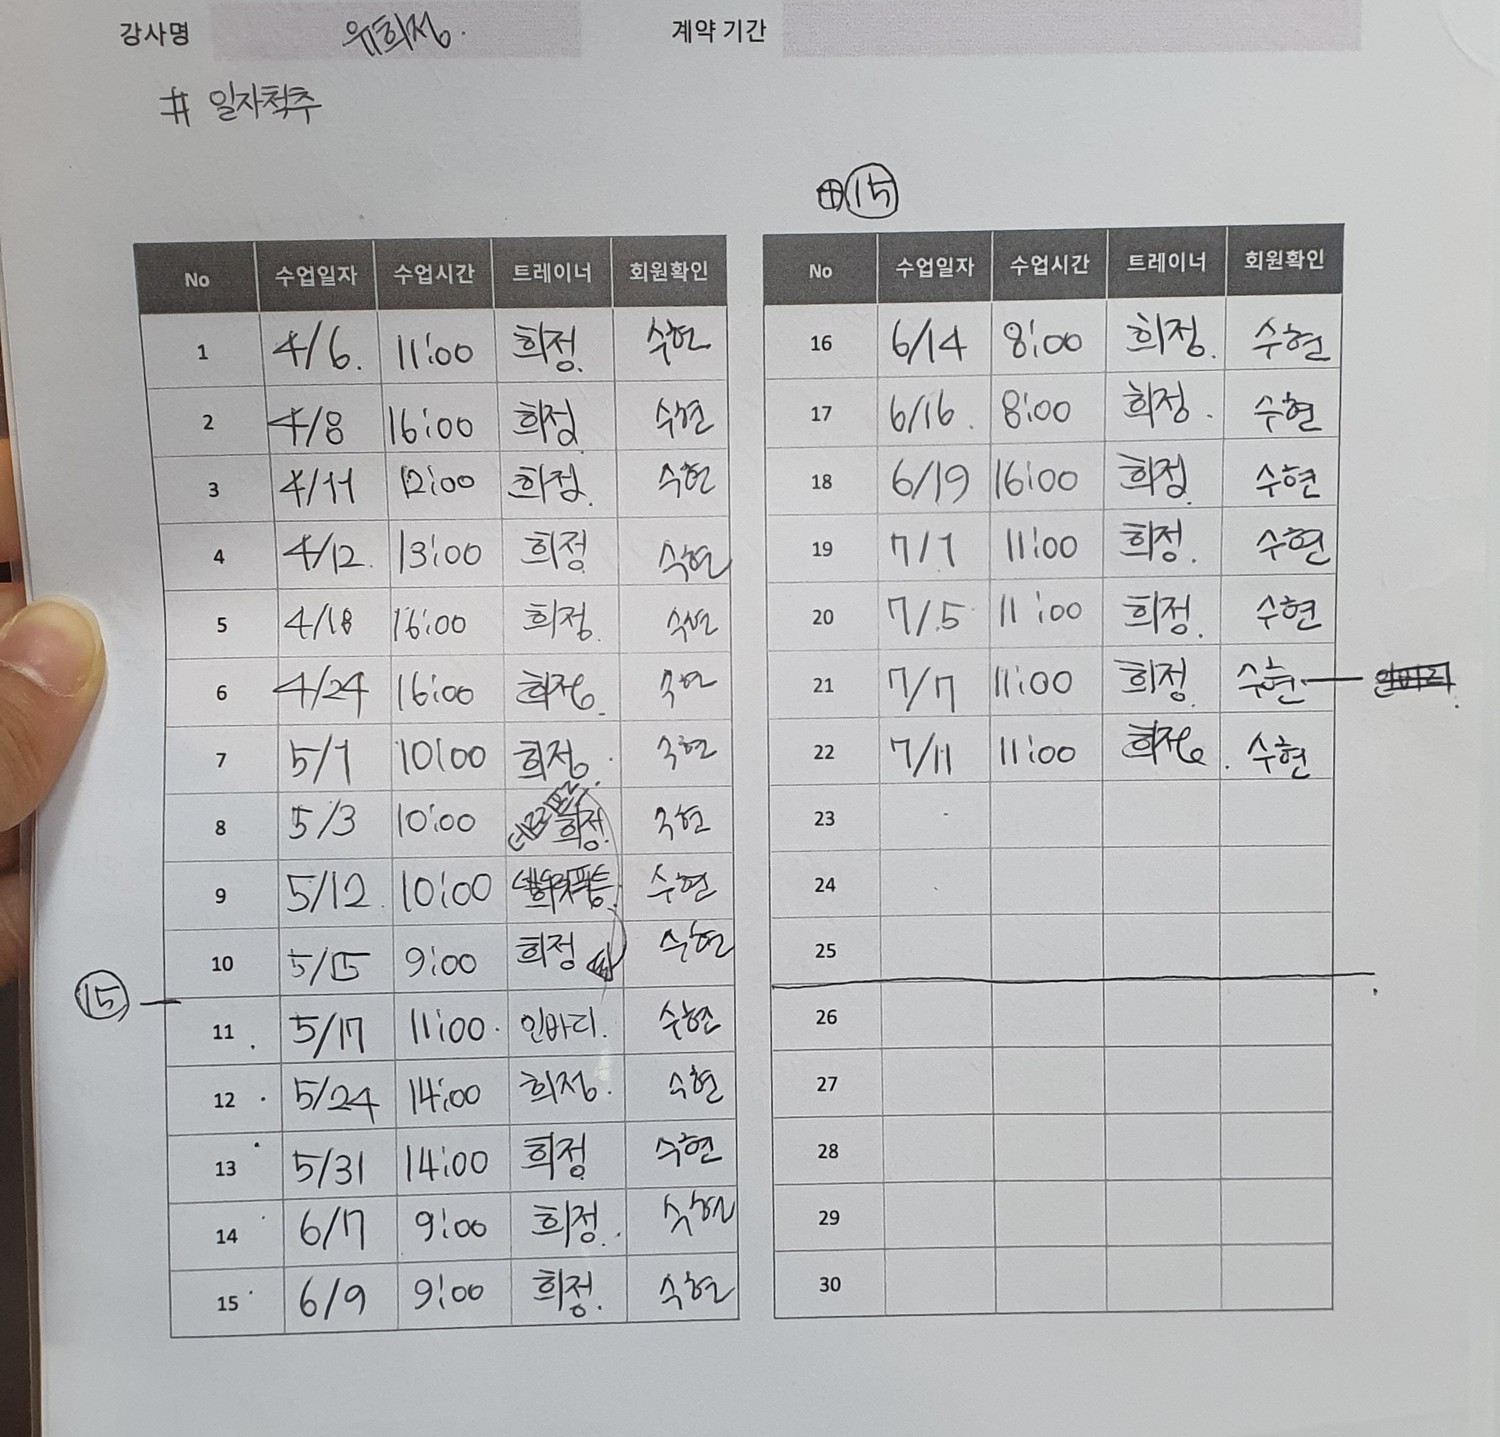 강사명 유희정. 계약 기간
# 일자척추
+ 15
No 수업일자 수업시간 트레이너 회원확인
1 4/6. 11:00 희정. 수현
2 4/8 16:00 희정 수현
3 4/11 12:00 희정. 수현
4 4/12. 13:00 희정 수현
5 4/18 16:00 희정. 수현
6 4/24 16:00 희정. 수현
7 5/1 10:00 희정. 수현
8 5/3 10:00 희정. 수현
9 5/12. 10:00 수현
10 5/15 9:00 희정 수현
15
11 5/17 11:00 인바디. 수현
12 5/24 14:00 희정. 수현
13 5/31 14:00 희정 수현
14 6/7 9:00 희정. 수현
15 6/9 9:00 희정. 수현
No 수업일자 수업시간 트레이너 회원확인
16 6/14 8:00 희정. 수현
17 6/16. 8:00 희정. 수현
18 6/19 16:00 희정. 수현
19 7/1 11:00 희정. 수현
20 7/5 11:00 희정. 수현
21 7/7 11:00 희정. 수현
22 7/11 11:00 희정. 수현
23
24
25
26
27
28
29
30